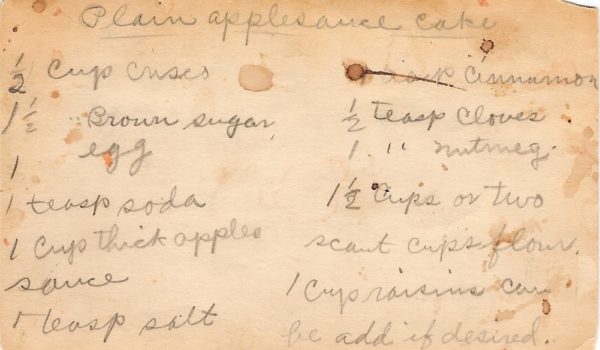 Plain applesauce Cake
½ Cup Crisco
1½ Brown sugar
1 egg
1 teasp soda
1 Cup thick apples
sauce
1 teasp salt
teasp Cinnamon
½ teasp Cloves
1 " nutmeg.
1½ Cups or two
scant cups flour.
1 Cup raisins can
be add if desired.